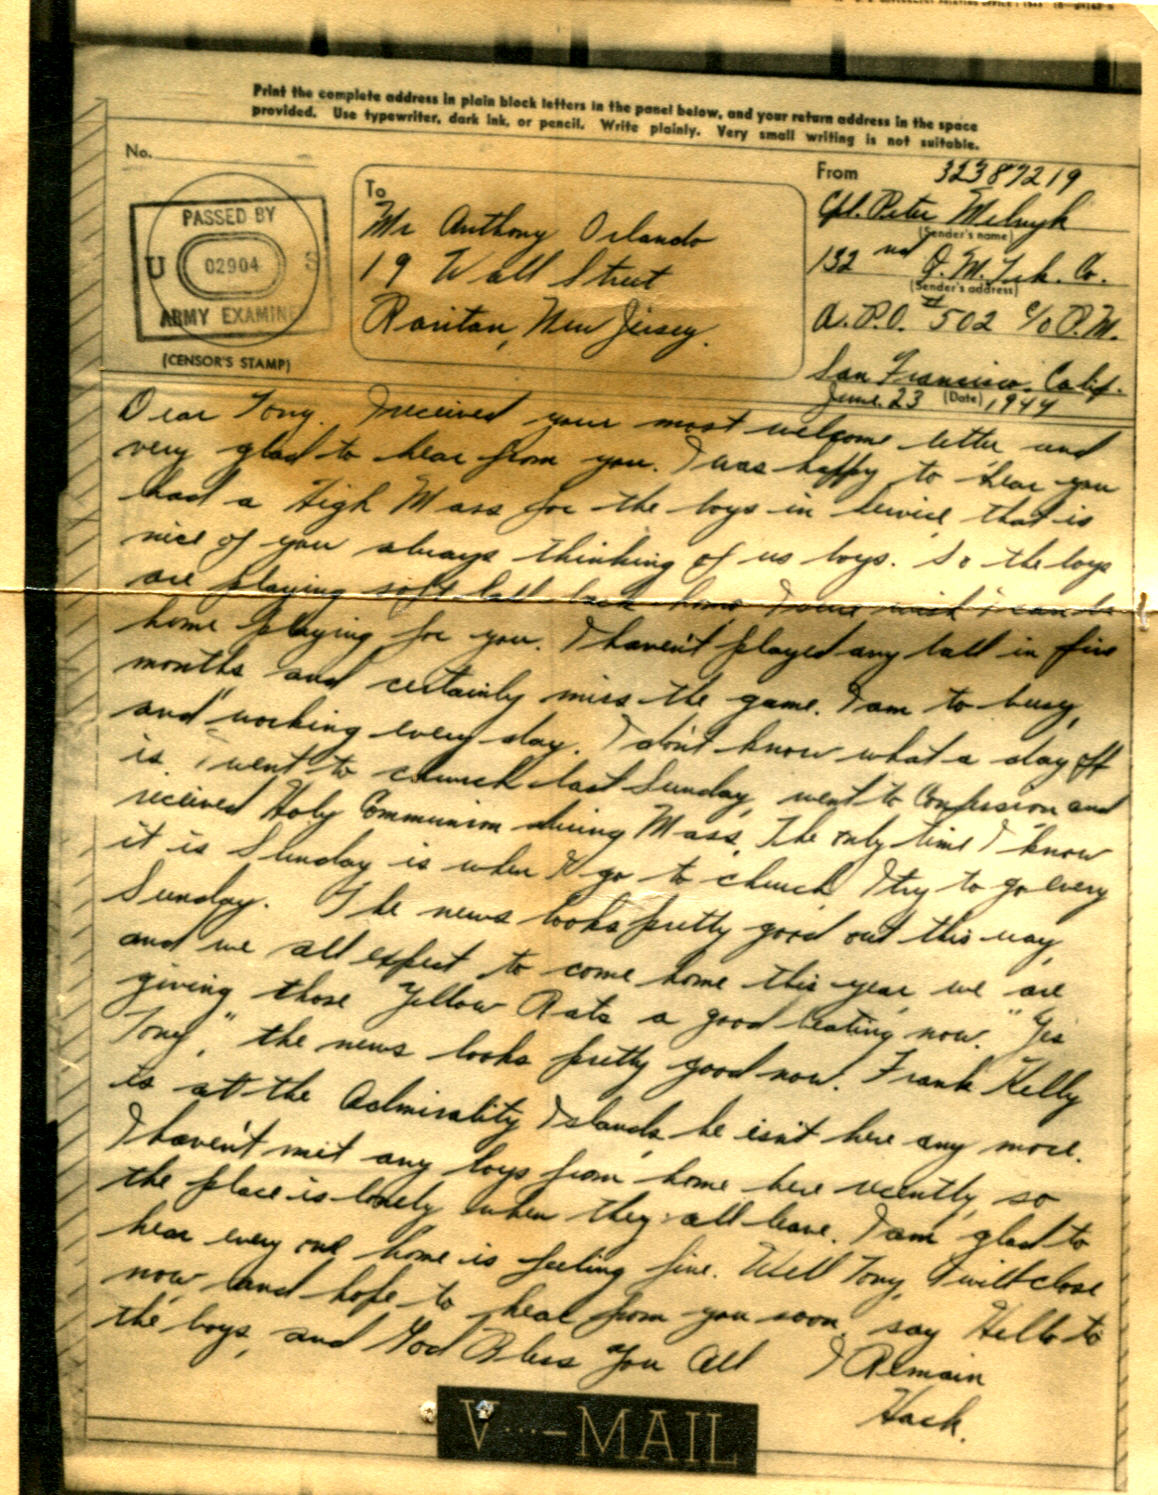 Print the complete address in plain block letters in the panel below, and your return address in the space
provided. Use typewriter, dark ink, or pencil. Write plainly. Very small writing is not suitable.
No.
PASSED BY
U 02904 S
ARMY EXAMIN
(CENSOR'S STAMP)
To
Mr Anthony Orlando
19 Wall Street
Raritan, New Jersey.
From 32387219
Cpl. Peter Melnyk
(Sender's name)
132nd Q. M. Trk. Co.
(Sender's address)
A. P.O. #502 c/o P.M.
San Francisco, Calif.
June 23 (Date), 1944
Dear Tony. I received your most welcome letter and
very glad to hear from you. I was happy to hear you
had a High Mass for the boys in service that is
nice of you always thinking of us boys. So the boys
are playing soft ball back home I sure wish i can be
home playing for you. I haven't played any ball in five
months and certainly miss the game. I am to busy,
and working every day. I don't know what a day off
is. i went to church last Sunday, went to Confession and
received Holy Communion during Mass. The only time I know
it is Sunday is when I go to church I try to go every
Sunday. The news looks pretty good out this way,
and we all expect to come home this year we are
giving those Yellow Rats a good beating now. "Yes
Tony," the news looks pretty good now. Frank Kelly
is at the Admirality Islands he isn't here any more.
I haven't met any boys from home here recently, so
the place is lonely when they all leave. I am glad to
hear every one home is feeling fine. Well Tony, I will close
now, and hope to hear from you soon, say Hello to
the boys, and God Bless You All I Remain
Hack.
V···-MAIL